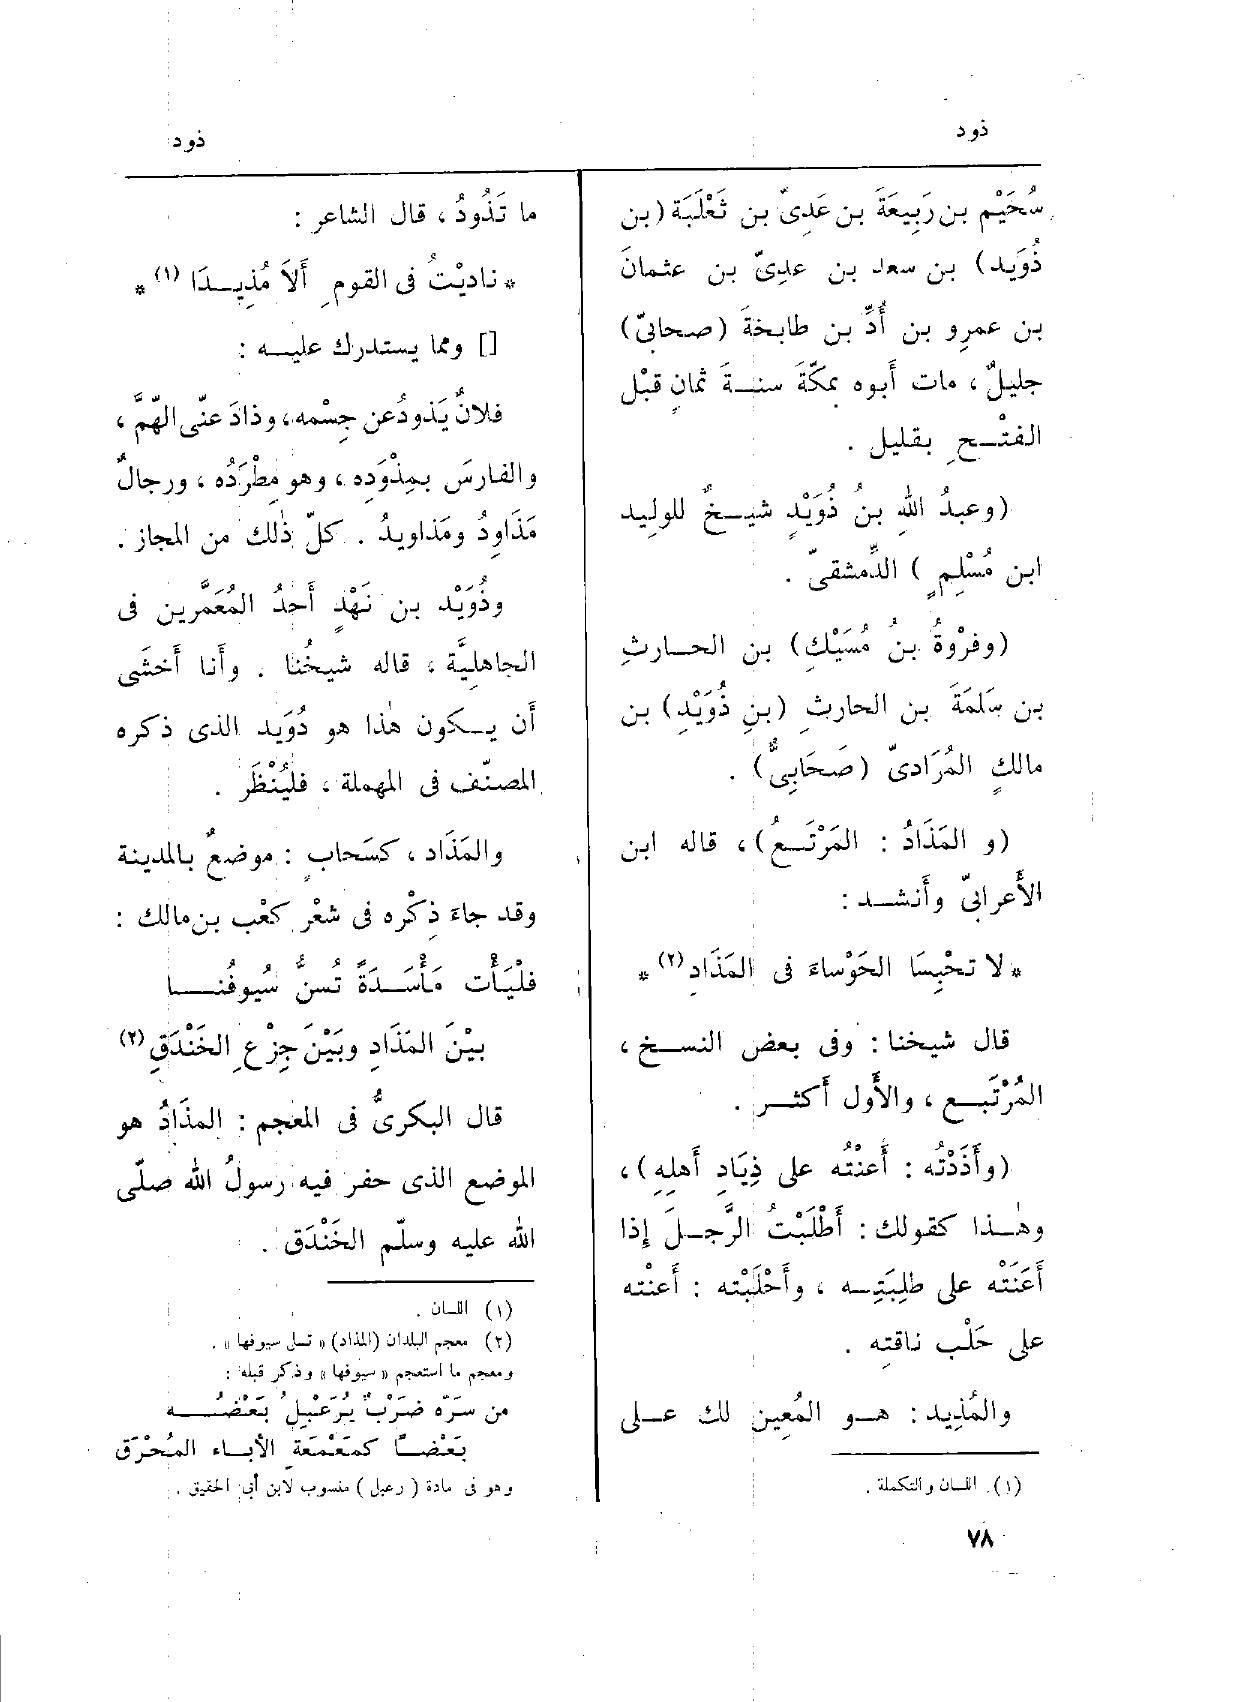 ذود
ذود
سُحَيْم بن رَبِيعَةَ بن عَدِىّ بن ثَعْلَبَة (بن
ذُوَيد) بن سعد بن عدِىّ بن عثمانَ
بن عمرِو بن أُدِّ بن طابخةَ (صحابىّ)
جليلٌ ، مات أَبوه بمكّةَ سنــةَ ثمانٍ قبْل
الفتْــحِ بقليل .
(وعبدُ اللهِ بنُ ذُوَيْدٍ شيــخٌ للوليد
ابن مُسْلِمٍ ) الدِّمشقىّ .
(وفرْوةُ بنُ مُسَيْكِ) بن الحــارثِ
بن سَلمَةَ بن الحارثِ (بنِ ذُوَيْدِ) بن
مالكٍ المُرَادىّ (صَحَابِىٌّ) .
(و المَذَادُ : المَرْتَــعُ) ، قاله ابن
الأَعرابىّ وأَنشــد :
* لا تحْبِسَا الحَوْساءَ فى المَذَادِ (٢) *
قال شيخنا : وفى بعض النســخ ،
المُرْتَبــع ، والأَول أَكثــر .
(وأَذَدْتُه : أَعنْتُه على ذِيَادِ أَهلِهِ) ،
وهٰــذا كقولك : أَطْلَبْتُ الرَّجــلَ إِذا
أَعَنْتَه على طلِبَتِــه ، وأَحْلَبْتُه : أَعنْته
على حَلْب ناقتِه .
والمُذِيد : هــو المُعِين لك عــلى
(١) اللسان والتكملة .
ما تَذُودُ ، قال الشاعر :
* ناديْتُ فى القومِ أَلاَ مُذِيــدَا (١) *
[] ومما يستدرك عليــه :
فلانٌ يَذودُ عن حِسْمه ، وذادَ عنّى الهَّمَّ ،
والفارسَ بمِذْوَدِه ، وهو مِطْرَدُه ، ورجالٌ
مَذَاوِدُ ومَذاويدُ . كلّ ذٰلك من المجاز .
وذُوَيْد بن نَهْدٍ أَحدُ المُعَمَّرين فى
الجاهليَّة ، قاله شيخُنا . وأَنا أَخشَى
أَن يــكون هٰذا هو دُوَيد الذى ذكره
المصنّف فى المهملة ، فليُنْظَر .
والمَذَاد ، كسَحابٍ : موضعٌ بالمدينة
وقد جاءَ ذِكْره فى شعْر كعْب بن مالك :
فلْيَأْت مَأْسَــدَةً تُسنُّ سُيوفُنــــا
بيْنَ المَذَادِ وبَيْنَ جِزْعِ الخَنْدَقِ (٢)
قال البكرىُّ فى المعْجم : المذَادُ هو
الموضع الذى حفر فيه رسولُ اللّٰه صلّى
اللّٰه عليه وسلّم الخَنْدَق .
(١) اللسان .
(٢) معجم البلدان (المذاد) « تسل سيوفها » .
ومعجم ما استعجم « سيوفها » وذكر قبله :
من سَرّه ضَرْبٌ يُرَعْبِلُ بَعْضُــــه
بَعْضــًا كمَعْمَعَةِ الأباء المُحْرَقِ
وهو فى مادة ( رعبل ) منسوب لابن أبى الحقيق .
٧٨